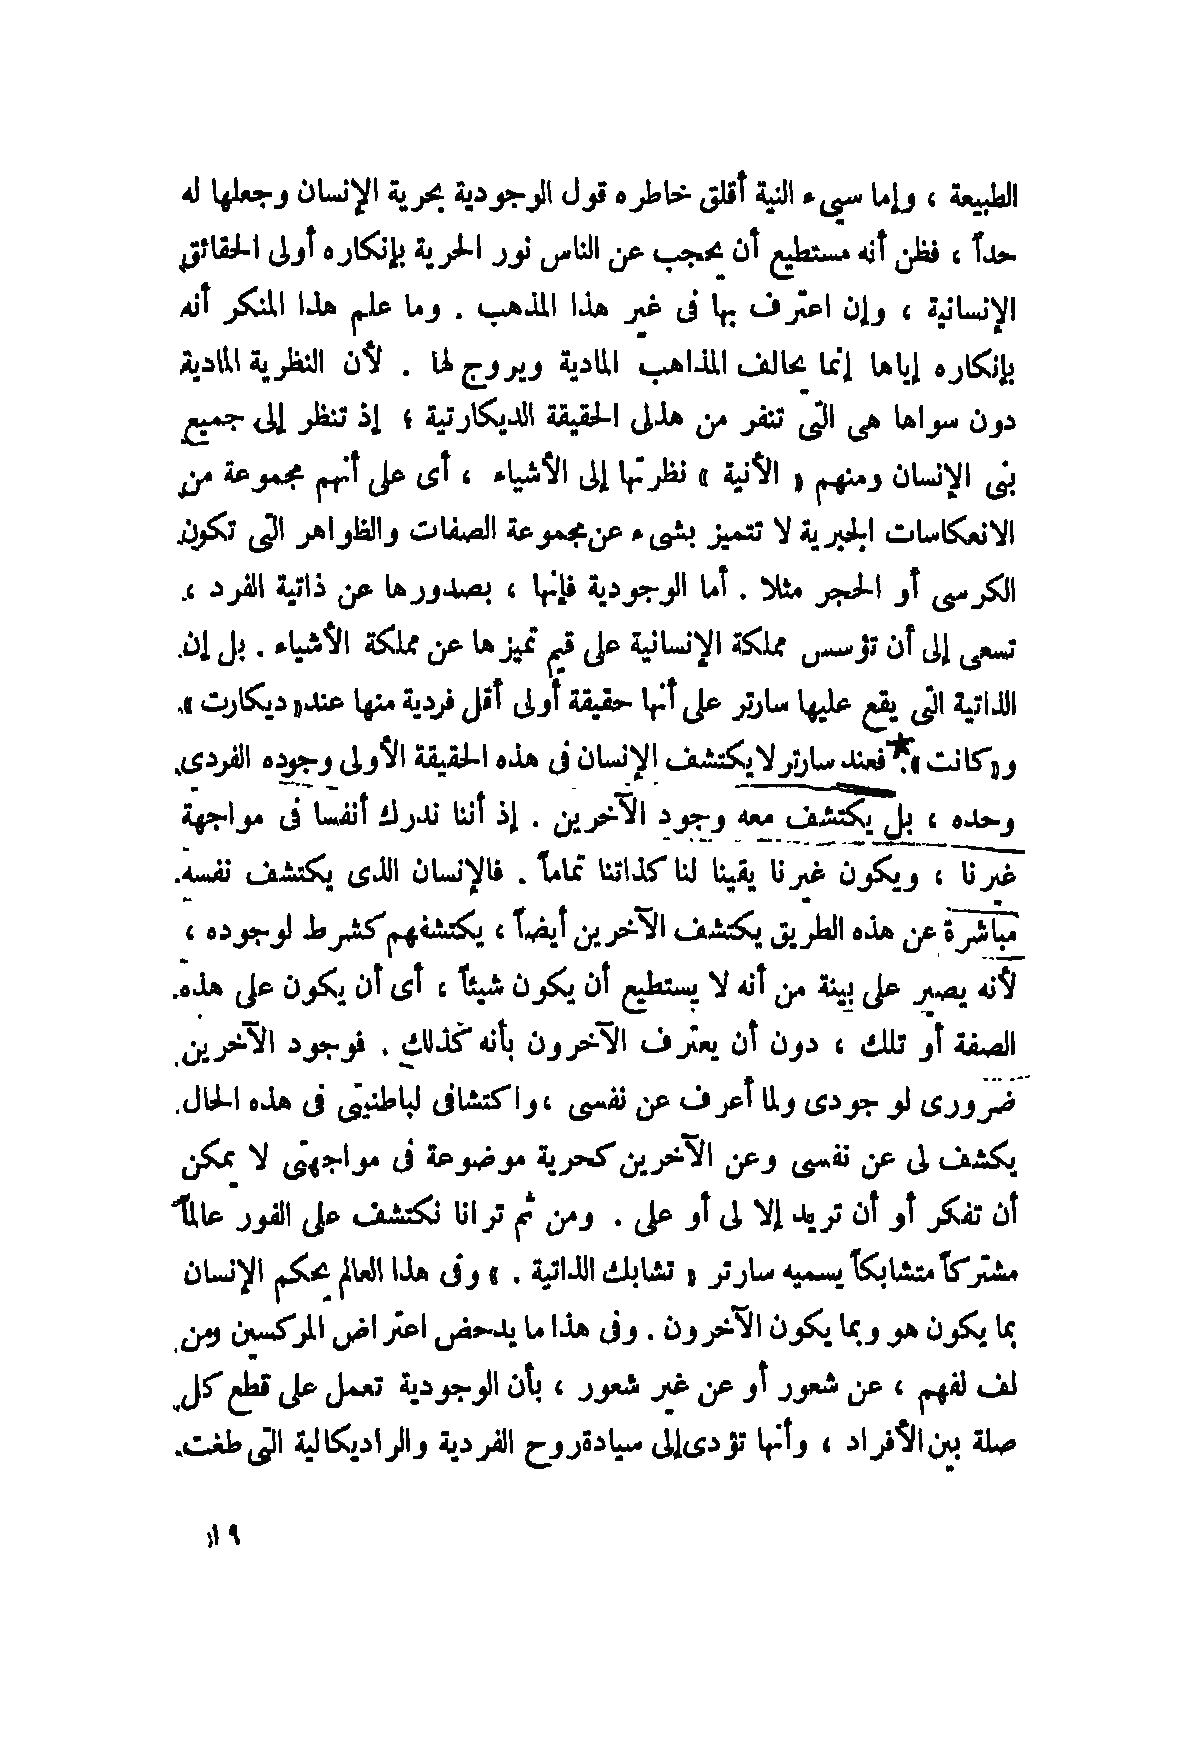 الطبيعة ، وإما سيىء النية أقلق خاطره قول الوجودية بحرية الإنسان وجعلها له
حداً ، فظن أنه مستطيع أن يحجب عن الناس نور الحرية بإنكاره أولى الحقائق
الإنسانية ، وإن اعترف بها فى غير هذا المذهب . وما علم هذا المنكر أنه
بإنكاره إياها إنما يخالف المذاهب المادية ويروج لها . لأن النظرية المادية
دون سواها هى التى تنفر من هذلى الحقيقة الديكارتية ؛ إذ تنظر إلى جميع
بنى الإنسان ومنهم « الأنية » نظرتها إلى الأشياء ، أى على أنهم مجموعة من
الانعكاسات الجبرية لا تتميز بشىء عن مجموعة الصفات والظواهر التى تكون
الكرسى أو الحجر مثلا . أما الوجودية فإنها ، بصدورها عن ذاتية الفرد ،
تسعى إلى أن تؤسس مملكة الإنسانية على قيم تميزها عن مملكة الأشياء . بل إن
الذاتية التى يقع عليها سارتر على أنها حقيقة أولى أقل فردية منها عند « ديكارت »
و« كانت » . فعند سارتر لا يكتشف الإنسان فى هذه الحقيقة الأولى وجوده الفردى
وحده ، بل يكتشف معه وجود الآخرين . إذ أننا ندرك أنفسا فى مواجهة
غيرنا ، ويكون غيرنا يقينا لنا كذاتنا تماماً . فالإنسان الذى يكتشف نفسه
مباشرة عن هذه الطريق يكتشف الآخرين أيضاً ، يكتشفهم كشرط لوجوده ،
لأنه يصير على بينة من أنه لا يستطيع أن يكون شيئاً ، أى أن يكون على هذه
الصفة أو تلك ، دون أن يعترف الآخرون بأنه كذلك . فوجود الآخرين
ضرورى لو جودى ولما أعرف عن نفسى ، واكتشافى لباطنيتى فى هذه الحال
يكشف لى عن نفسى وعن الآخرين كحرية موضوعة فى مواجهتى لا يمكن
أن تفكر أو أن تريد إلا لى أو على . ومن ثم ترانا نكتشف على الفور عالماً
مشتركاً متشابكاً يسميه سارتر « تشابك الذاتية . » وفى هذا العالم يحكم الإنسان
بما يكون هو وبما يكون الآخرون . وفى هذا ما يدحض اعتراض المركسين ومن
لف لفهم ، عن شعور أو عن غير شعور ، بأن الوجودية تعمل على قطع كل
صلة بين الأفراد ، وأنها تؤدى إلى سيادة روح الفردية والراديكالية التى طغت
١٩